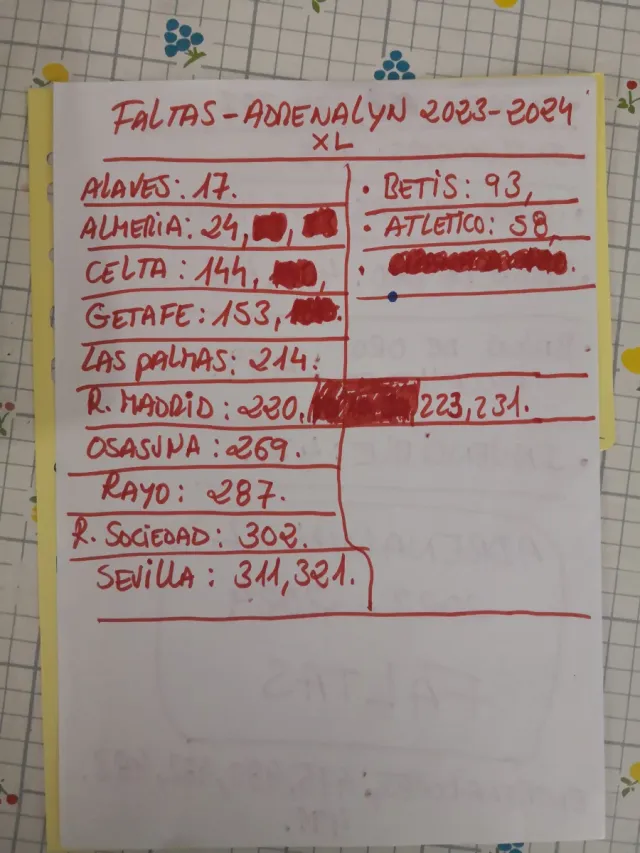 FALTAS-ADRENALYN 2023-2024
XL
ALAVES: 17.
ALMERIA: 24,
CELTA: 144,
GETAFE: 153,
LAS PALMAS: 214.
R. MADRID: 220, 223, 231.
OSASUNA: 269.
RAYO: 287.
R. SOCIEDAD: 302.
SEVILLA: 311, 321.
· BETIS: 93,
· ATLETICO: 58,